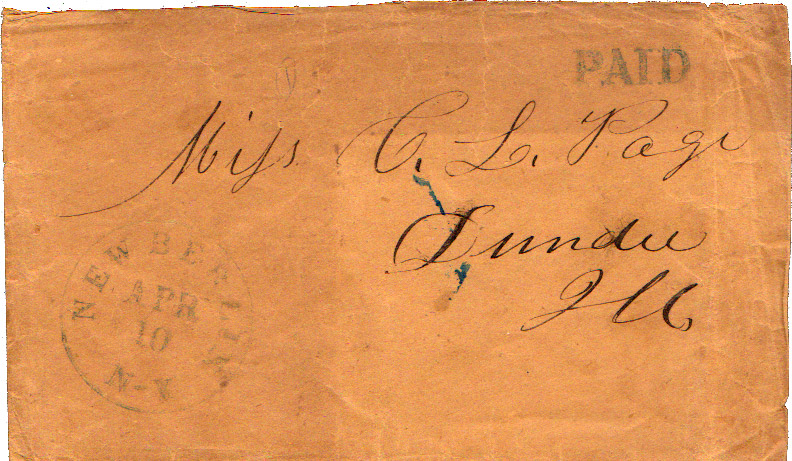 PAID
Miss C. L. Page
Dundee
Ills
NEW BERLIN
APR
10
N-Y